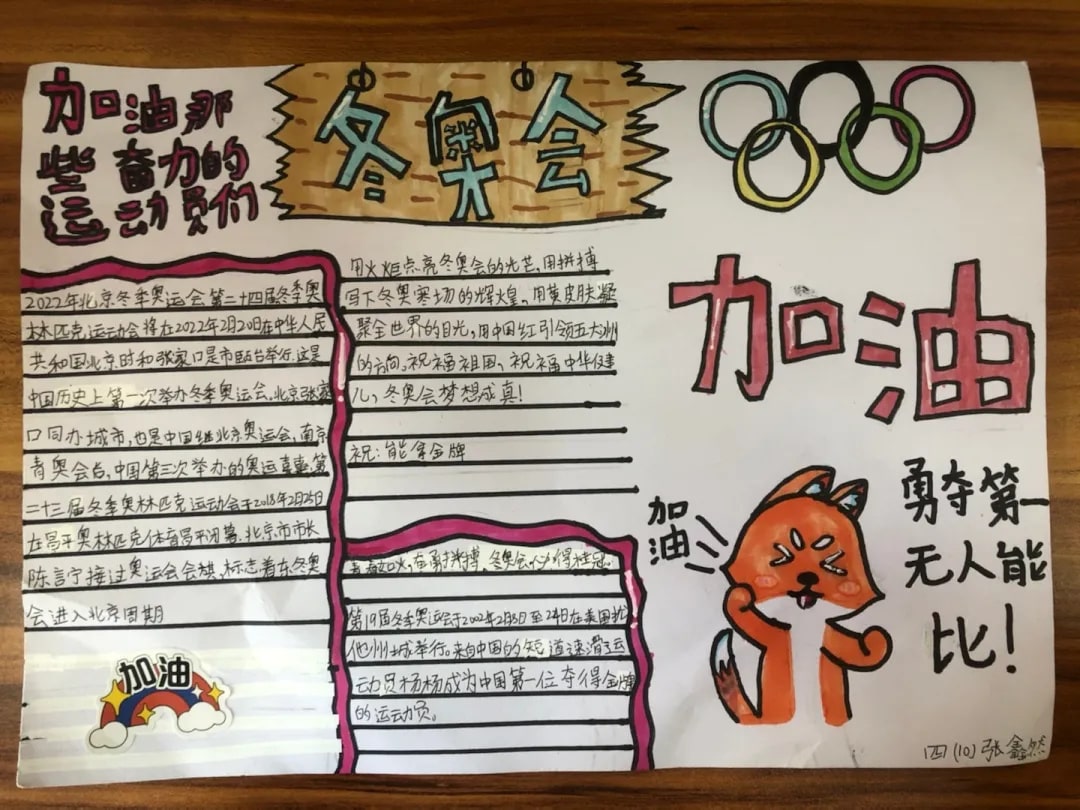 加油那
些奋力的
运动员们
冬奥会
2022年北京冬季奥运会第二十四届冬季奥
林匹克运动会将在2022年2月20日在中华人民
共和国北京时和张家口是市
举行.这是
中国历史上第一次举办冬季奥运会.北京张家
口同办城市,也是中国继北京奥运会,南京
青奥会后,中国第三次举办的奥运
第
二十三届冬季奥林匹克运动会于2018年2月25日
在
平奥林匹克体育
闭幕.北京市市长
陈言宁接过奥运会会旗,标志着东冬奥
会进入北京周期
加油
用火炬点亮冬奥会的光芒,用拼搏
写下冬奥寒场的辉煌,用黄皮肤凝
聚全世界的目光,用中国红引领五大洲
的方向.祝福祖国,祝福中华健
儿,冬奥会梦想成真!
祝:能拿金牌
奋勇拼搏,冬奥会
得桂冠.
第19届冬季奥运会于2002年2月8日至24日在美国犹
他州
城举行.来自中国的短道速滑运
动员杨杨成为中国第一位夺得金牌
的运动员。
加油
加
油
勇夺第一
无人能
比!
四(10)张鑫然